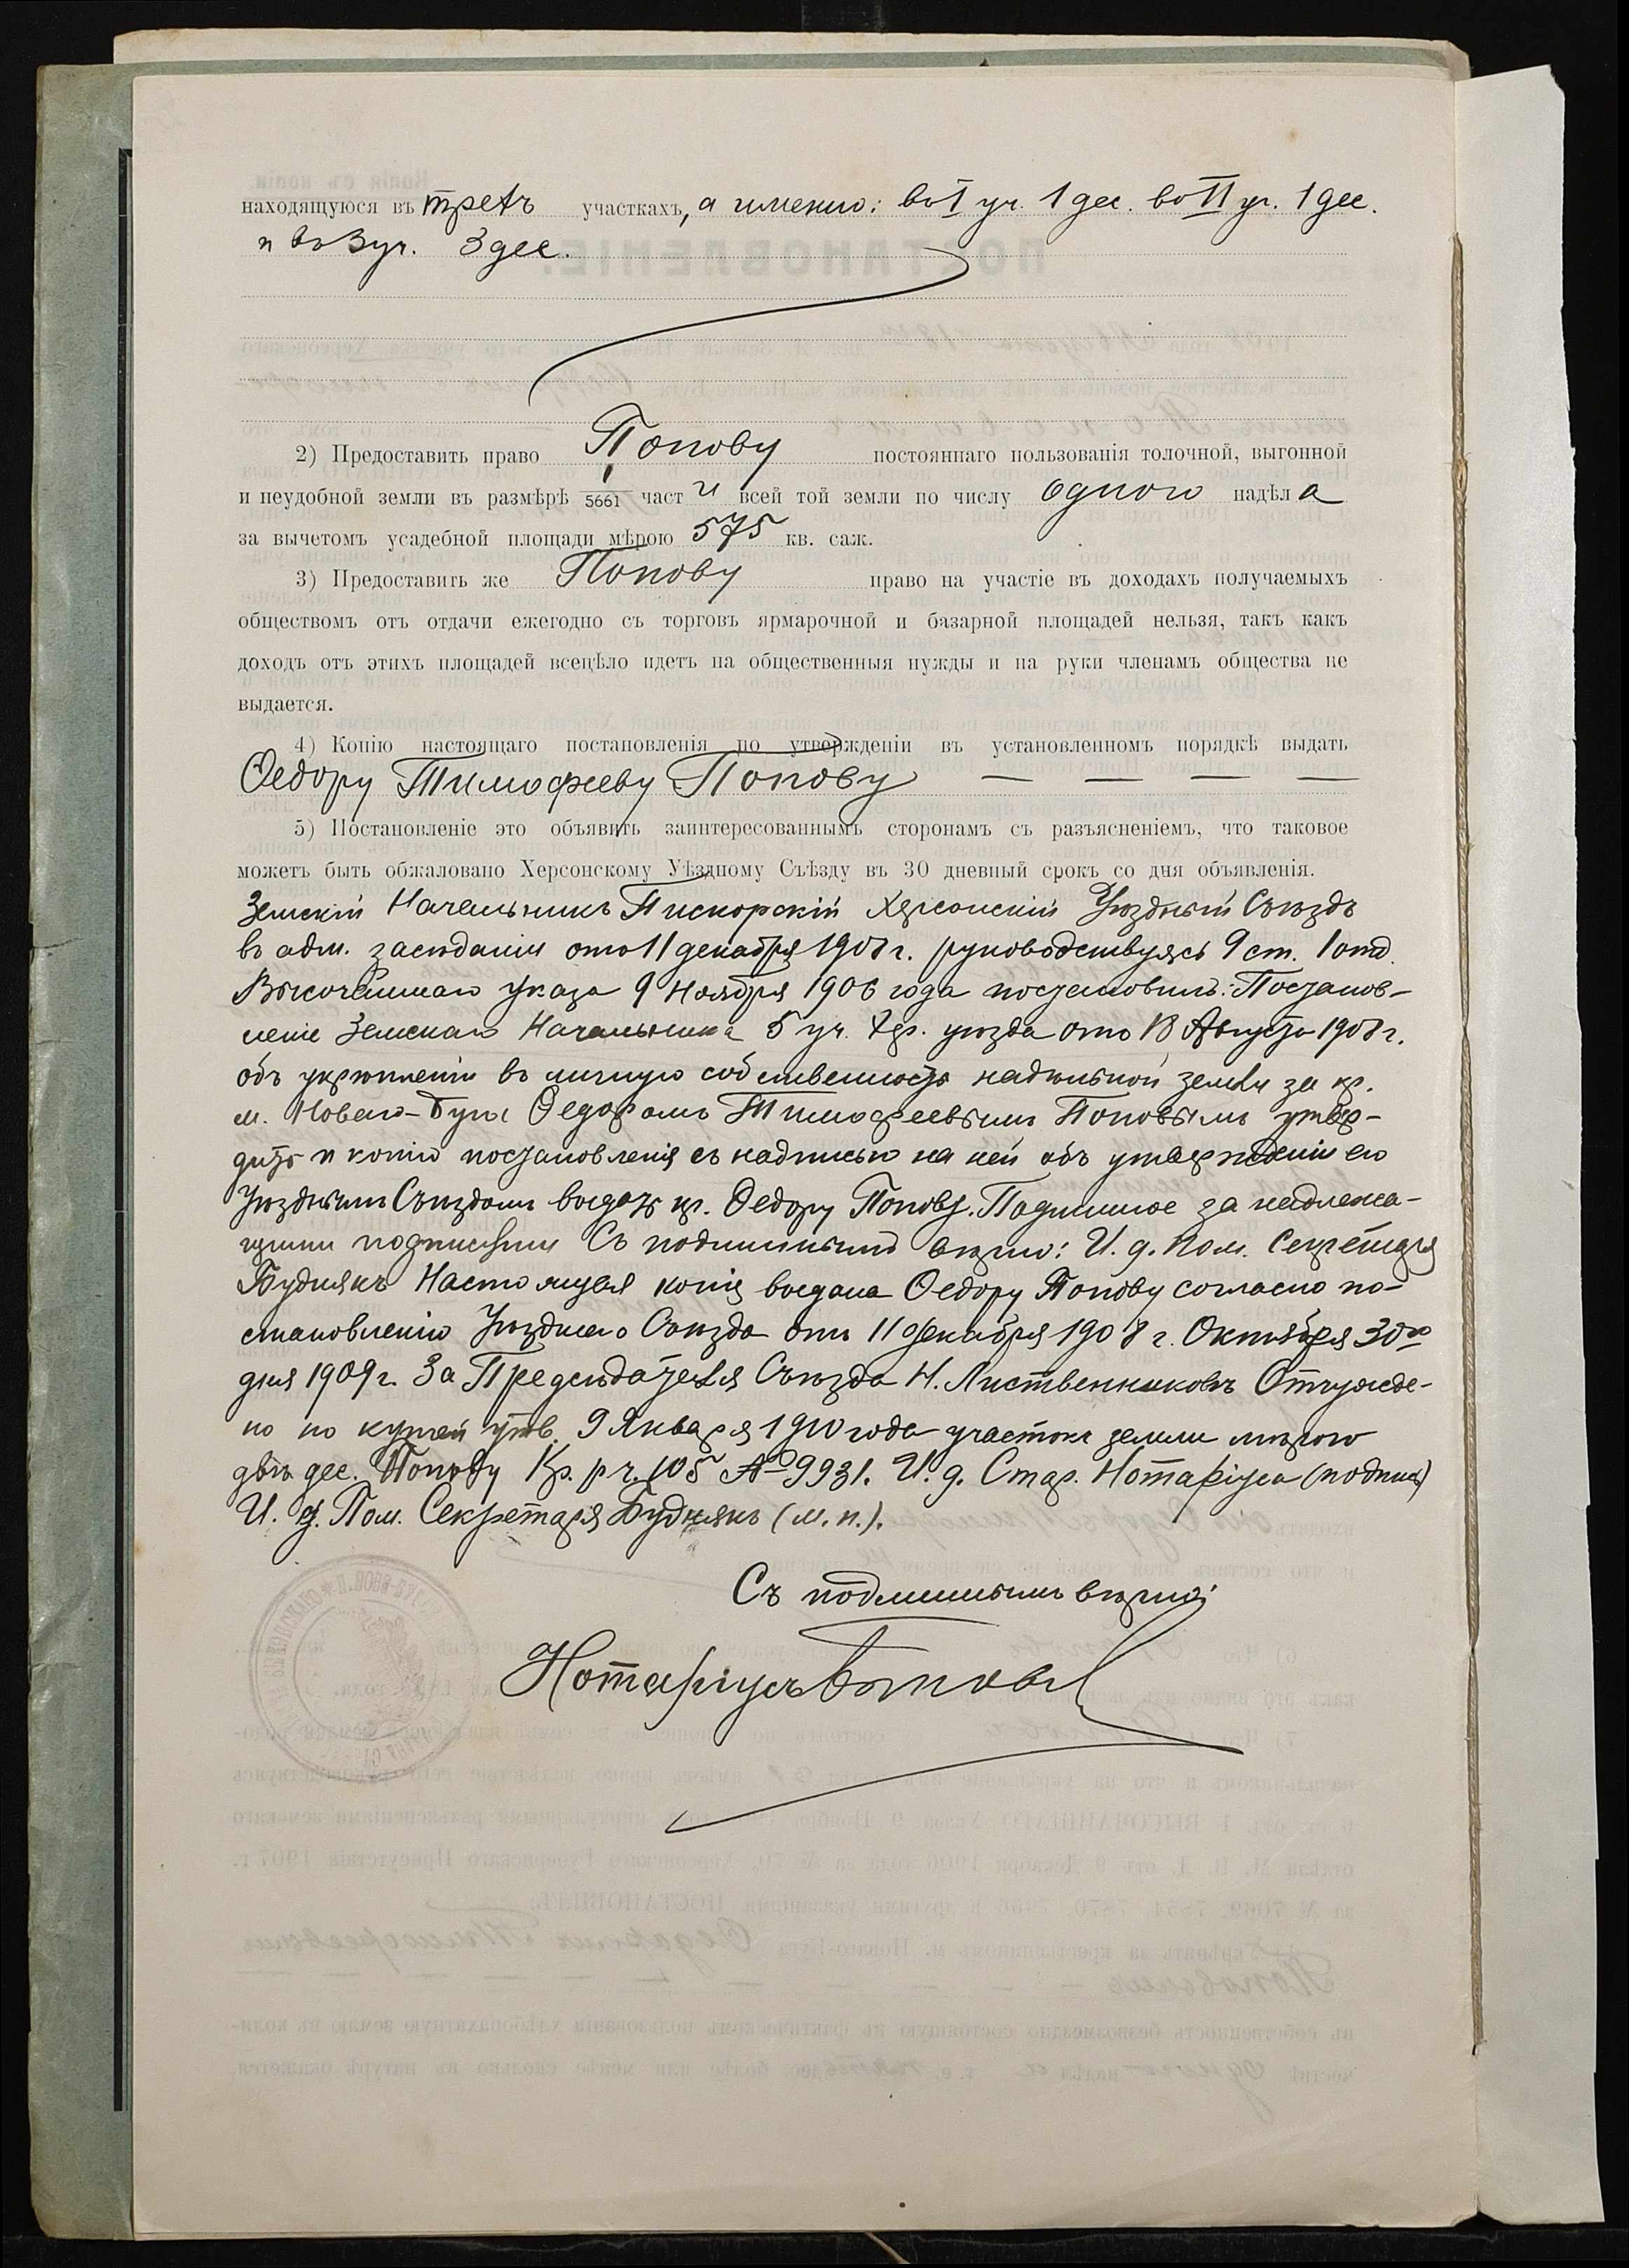 находящуюся въ трехъ участкахъ, а именно: во I уч. 1 дес. во II уч. 1 дес.
и въ 3 уч. 3 дес.
2) Предоставить право Попову постояннаго пользованія толочной, выгонной
и неудобной земли въ размѣрѣ 1/5661 части всей той земли по числу одного надѣла
за вычетомъ усадебной площади мѣрою 575 кв. саж.
3) Предоставить же Попову право на участіе въ доходахъ получаемыхъ
обществомъ отъ отдачи ежегодно съ торговъ ярмарочной и базарной площадей нельзя, такъ какъ
доходъ отъ этихъ площадей всецѣло идетъ на общественныя нужды и на руки членамъ общества не
выдается.
4) Копію настоящаго постановленія по утвержденіи въ установленномъ порядкѣ выдать
Ѳедору Тимофееву Попову — — — —
5) Постановленіе это объявить заинтересованнымъ сторонамъ съ разъясненіемъ, что таковое
можетъ быть обжаловано Херсонскому Уѣздному Съѣзду въ 30 дневный срокъ со дня объявленія.
Земскій Начальникъ Пискорскій Херсонскій Уѣздный Съѣздъ
въ адм. засѣданіи отъ 11 декабря 1908 г. руководствуясь 9 ст. 1 отд.
Высочайшаго указа 9 Ноября 1906 года постановилъ: Постанов-
леніе Земскаго Начальника 5 уч. Хер. уѣзда отъ 18 Августа 1908 г.
объ укрѣпленіи въ личную собственность надѣльной земли за кр.
м. Новаго-Буга Ѳедоромъ Тимофеевымъ Поповымъ утвер-
дить и копію постановленія съ надписью на ней объ утвержденіи его
Уѣзднымъ Съѣздомъ выдать кр. Ѳедору Попову. Подлинное за надлежа-
щими подписями Съ подлиннымъ вѣрно: И. д. Пом. Секретаря
Буднякъ Настоящая копія выдана Ѳедору Попову согласно по-
становленію Уѣзднаго Съѣзда отъ 11 декабря 1908 г. Октября 30го
дня 1909 г. За Председателя Съѣзда Н. Лиственниковъ Отчужде-
но по купчей утв. 9 Января 1910 года участокъ земли мѣрою
двѣ дес. Попову Кр. р. ч. 105 № 9931. И. д. Стар. Нотаріуса (подпись)
И. д. Пом. Секретаря Буднякъ (м. п.).
Съ подлиннымъ вѣрно:
Нотаріусъ